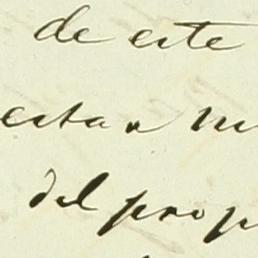 de este
esta
del prop